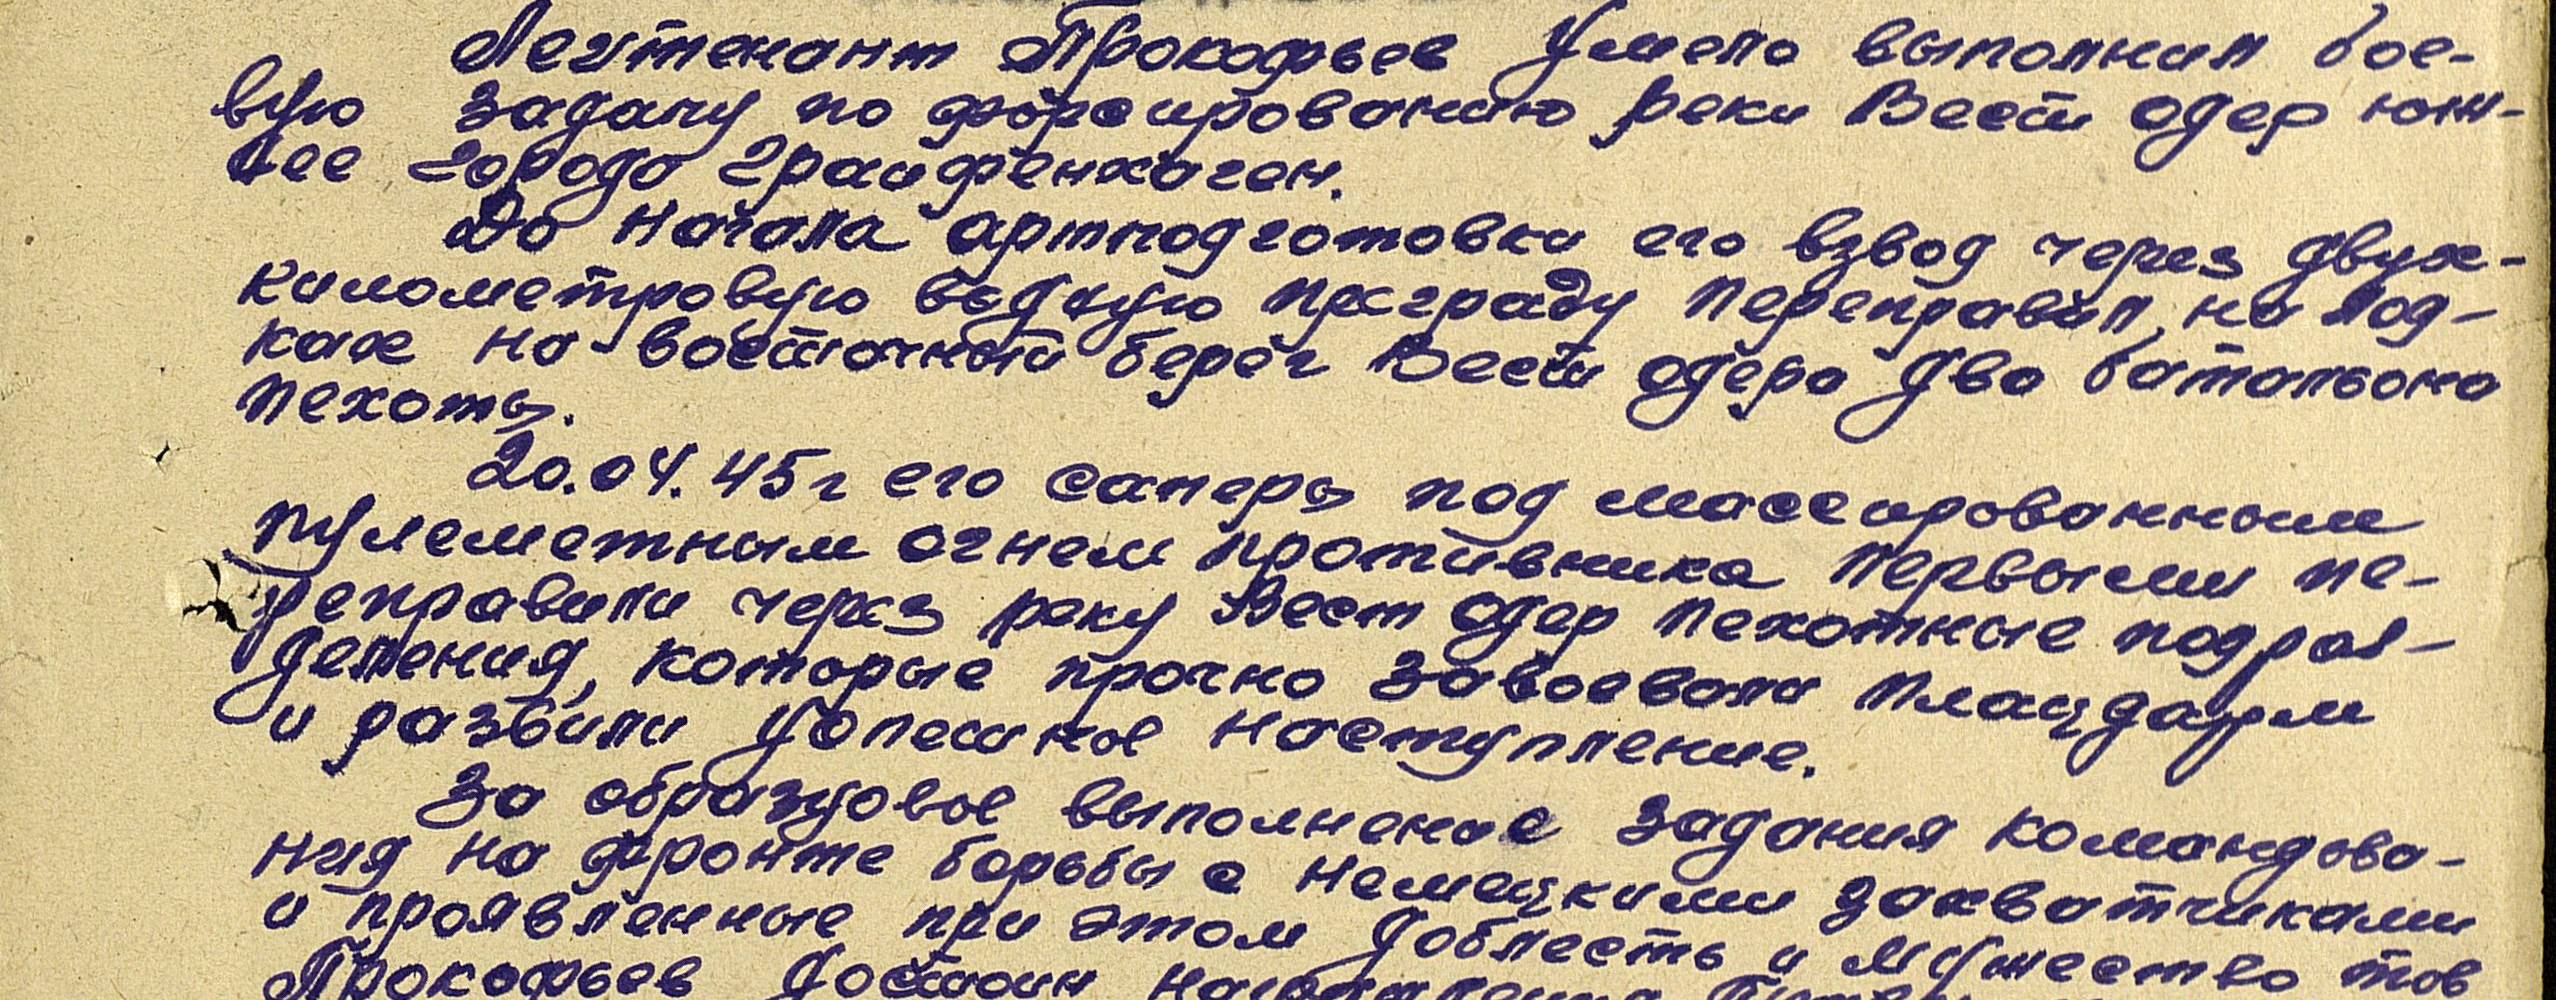 Лейтенант Прокофьев умело выполнил бое-
вую задачу по форсированию реки Вест одер юж-
нее города Грайфенхаген.
До начала артподготовки его взвод через двух-
километровую водную преграду переправил, на лод-
ках на восточный берег Вест одера два батальона
пехоты.
20.04.45г его саперы под массированным
пулеметным огнем противника первыми пе-
реправили через реку Вест одер пехотные подраз-
деления, которые прочно завоевали плацдарм
и развили успешное наступление.
За образцовое выполнение задания командова-
ния на фронте борьбы с немецкими захватчиками
и проявленные при этом доблесть и мужество тов
Прокофьев достоин